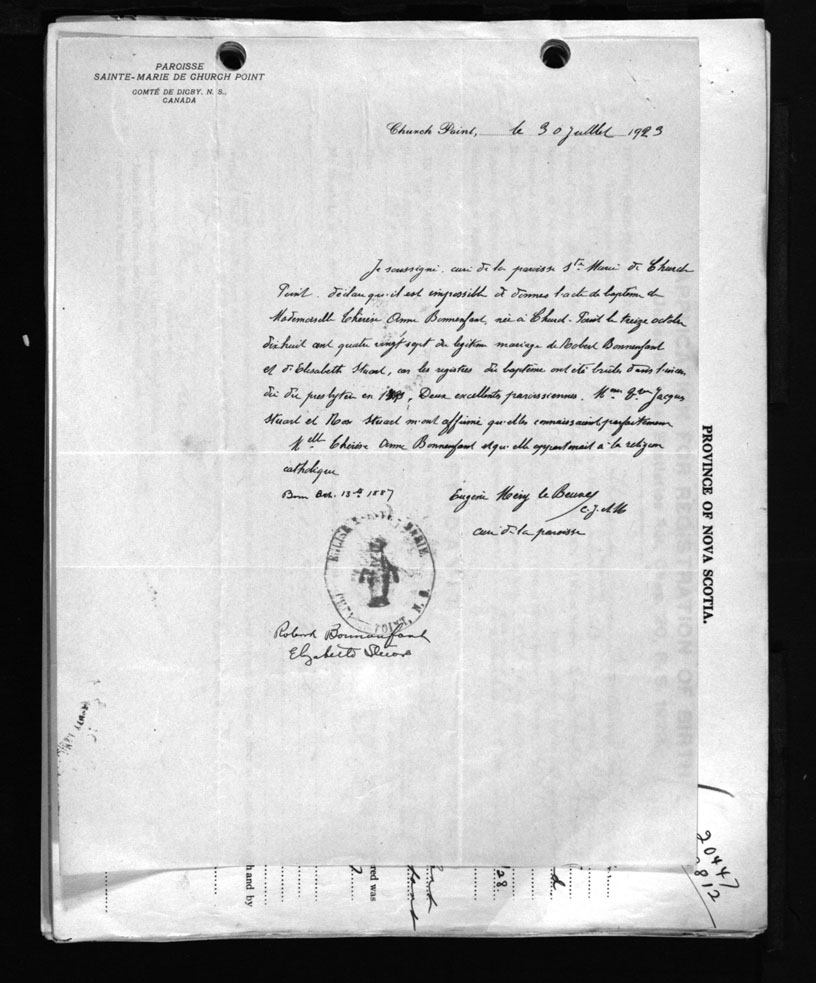 PAROISSE
SAINTE-MARIE DE CHURCH POINT
COMTÉ DE DIGBY, N. S.,
CANADA
Church Point, le 30 Juillet 1923
Je soussigné curé de la paroisse Ste Marie de Church
Point déclare qu'il est impossible de donner l'acte de baptême de
Mademoiselle Thérèse Anne Bonnenfant, née à Church-Point le treize octobre
dix huit cent quatre vingt sept du légitime mariage de Robert Bonnenfant
et d'Elisabeth Stuart, car les registres du baptême ont été brulés dans l'incen
die du presbytère en Deux excellents paroissiens Jacques
Stuart et Stuart m'ont affirmé qu'elles connaissaient parfaitement
Melle Thérèse Anne Bonnenfant et qu'elle appartenait à la religion
catholique
Born Oct. 13th 1887
Eugène le
c.j.m
curé de la paroisse
Robert Bonnenfant
Elizabeth
PROVINCE OF NOVA SCOTIA.
FOR REGISTRATION OF BIRTH
20447
812
h and by
red was
28